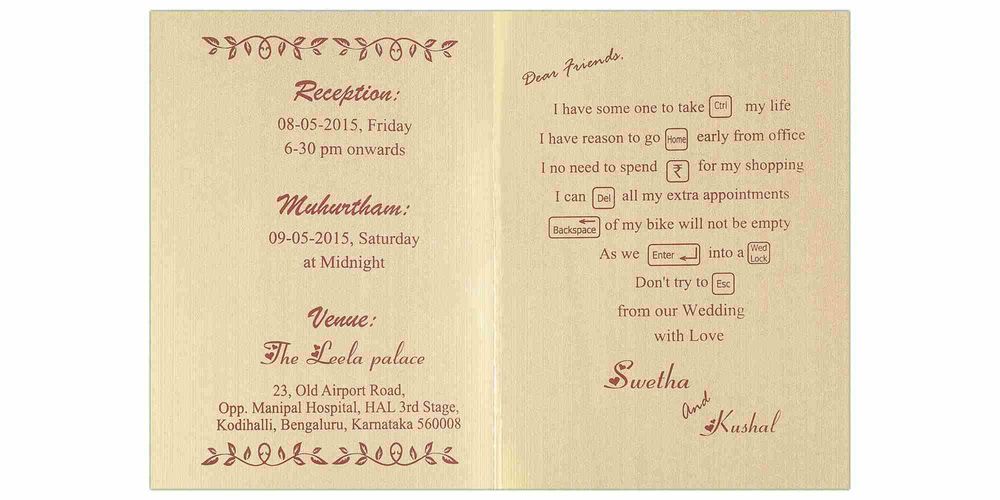 Reception:
08-05-2015, Friday
6-30 pm onwards
Muhurtham:
09-05-2015, Saturday
at Midnight
Venue:
The Leela palace
23, Old Airport Road,
Opp. Manipal Hospital, HAL 3rd Stage,
Kodihalli, Bengaluru, Karnataka 560008
Dear Friends,
I have some one to take Ctrl my life
I have reason to go Home early from office
I no need to spend ₹ for my shopping
I can Del all my extra appointments
Backspace of my bike will not be empty
As we Enter into a Wed Lock
Don't try to Esc
from our Wedding
with Love
Swetha
and
Kushal